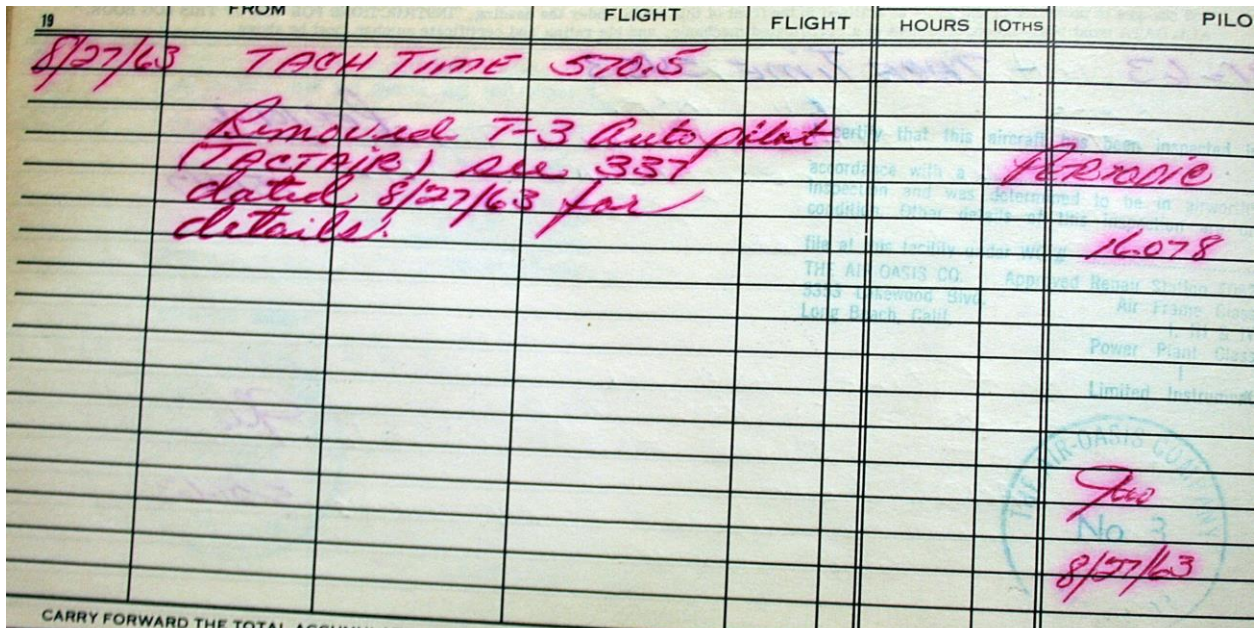 19 FROM FLIGHT FLIGHT HOURS 10THS PILO
8/27/63 TACH TIME 570.5
Removed T-3 Autopilot
(TACTAIR) see 337
dated 8/27/63 for
details.
certify that this aircraft has been inspected in
accordance with a Periodic
Inspection and was determined to be in airworthy
condition. Other details of this inspection
file at this facility under WO# 16078
THE AIR OASIS CO. Approved Repair Station
Lakewood Blvd. Air Frame Class
Long Beach, Calif.
Power Plant Class
I
Limited Instrument
THE AIR-OASIS COMPANY
No 3
8/27/63
CARRY FORWARD THE TOTAL